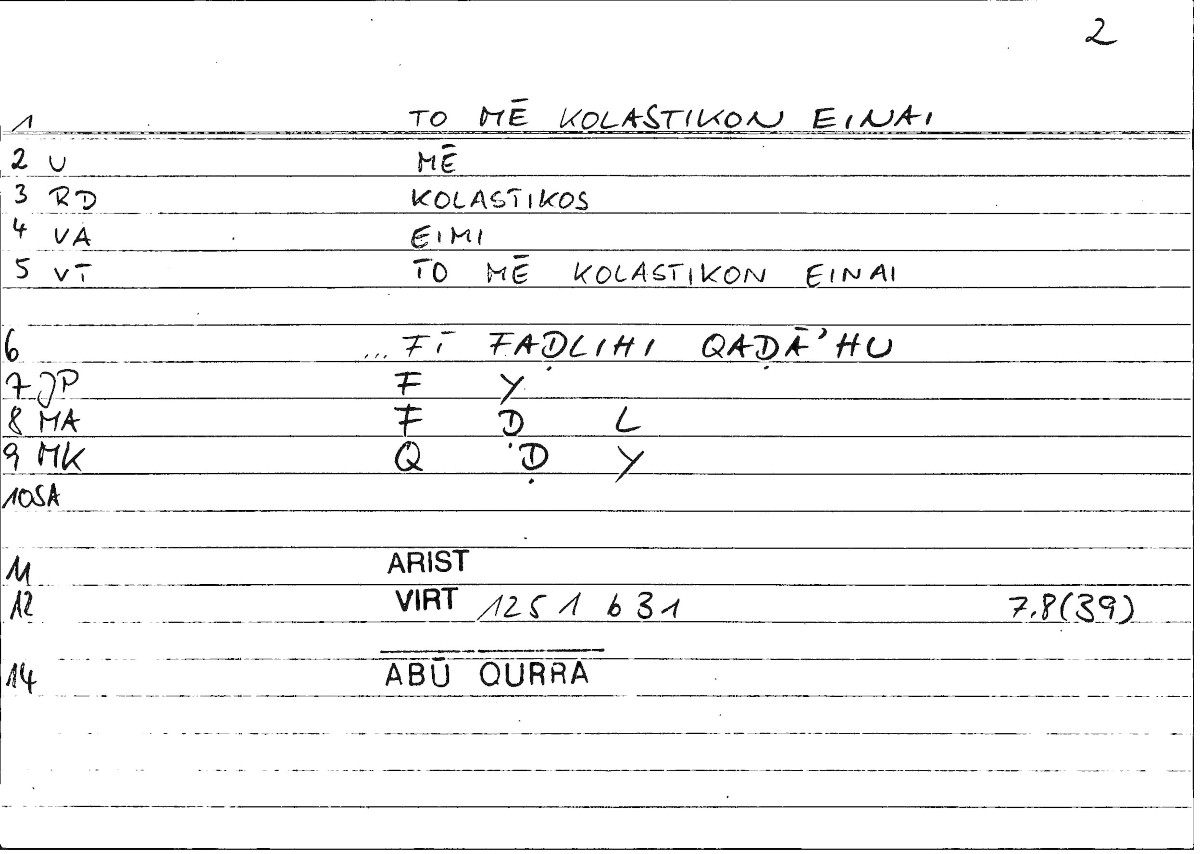 2
1 TO MĒ KOLASTIKON EINAI
2 U MĒ
3 RD KOLASTIKOS
4 VA EIMI
5 VT TO MĒ KOLASTIKON EINAI
6 ... FĪ FAḌLIHI QAḌĀ'HU
7 JP F Y
8 MA F Ḍ L
9 MK Q Ḍ Y
10 SA
11 ARIST
12 VIRT 1251 b 31 7.8(39)
14 ABŪ QURRA